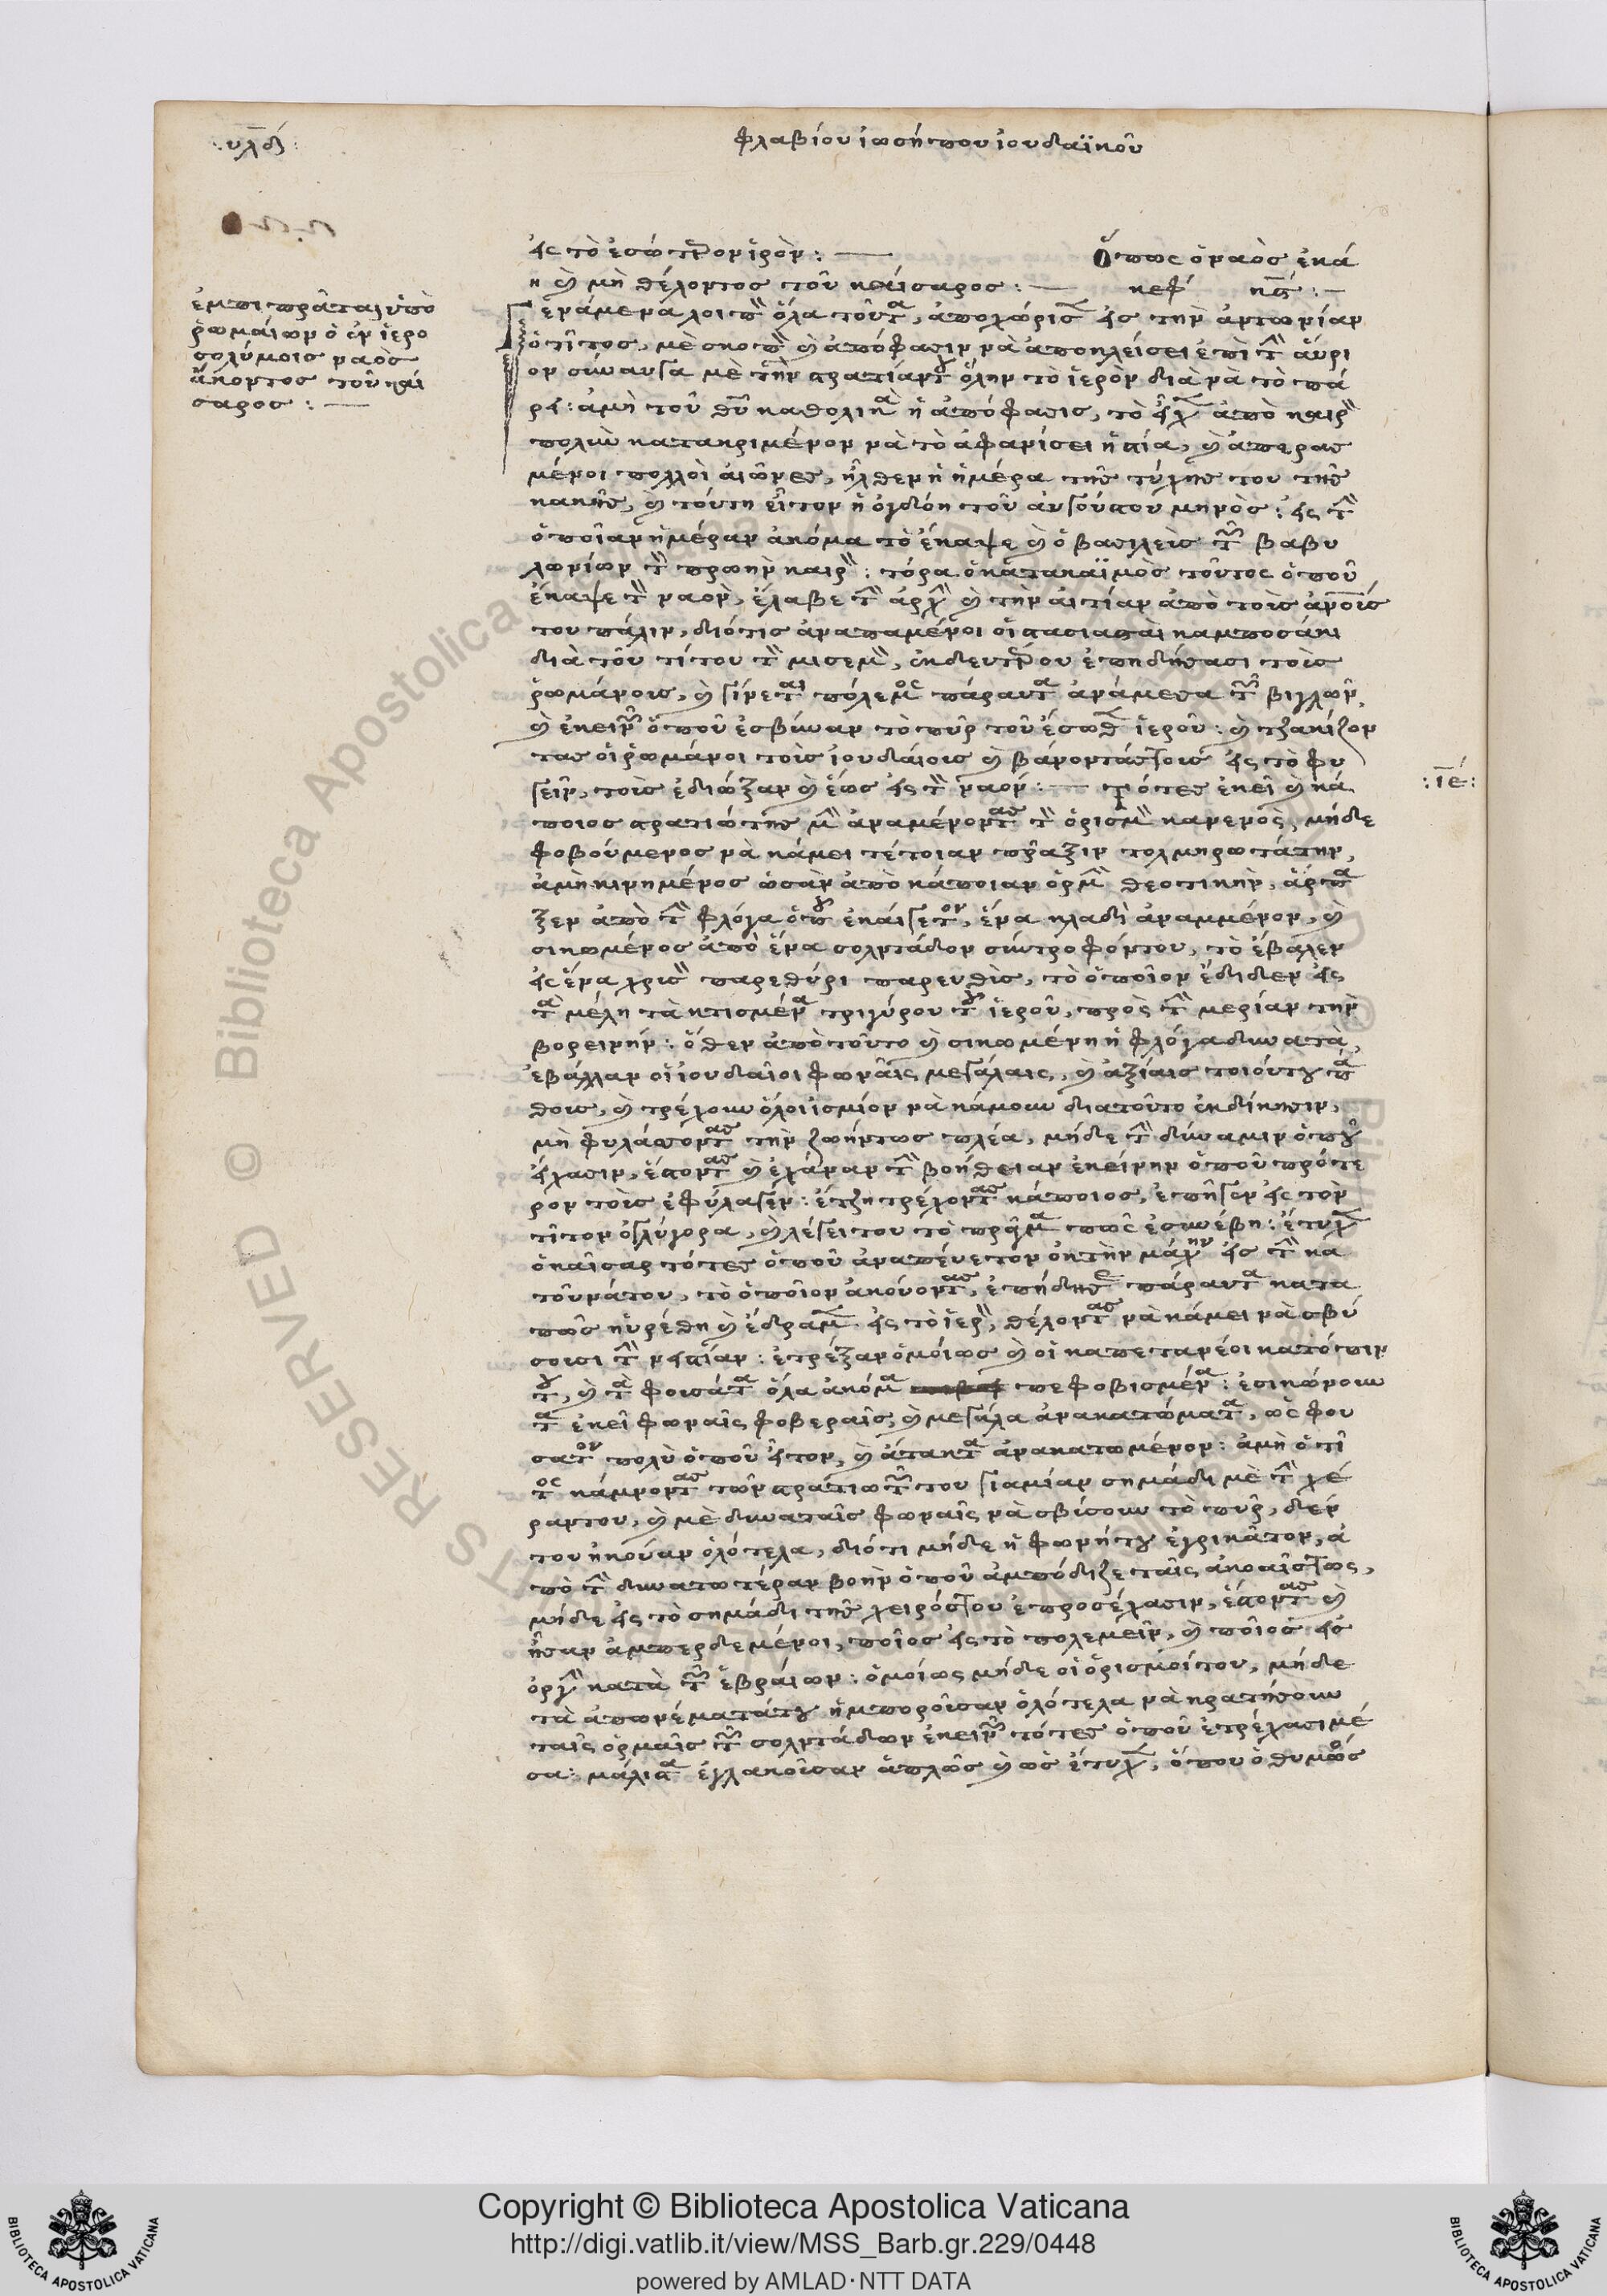 :υλδ:
φλαβίου ἰωσήπου ἰουδαϊκοῦ
ἐμπιπρᾶται ὑπὸ
ῥωμαίων ὁ ἐν ἱερο
σολύμοις ναὸς
ἄκοντος τοῦ καί
σαρος : —
εἰς τὸ ἐσώτερον ἱερὸν : — Ὅπως ὁ ναὸς ἐκά
η καὶ μὴ θέλοντος τοῦ καίσαρος : — κεφ κς : —
Γενάμενα λοιπὸν ὅλα τοῦτα, ἀπολώρισεν εἰς τὴν ἀντωνίαν
ὁ τίτος, μὲ σκοπὸν καὶ ἀπόφασιν νὰ ἀποκλείσει ἐπὶ τὴν αὔρι
ον σύναυγα μὲ τὴν στρατίαν του ὅλην τὸ ἱερὸν διὰ νὰ τὸ πά
ρει: ἀμὴ τοῦ θεοῦ καθολικὰ ἡ ἀπόφασις, τὸ εἶχεν ἀπὸ καιρὸν
πολὺν κατακριμένον νὰ τὸ ἀφανίσει ἡ στία, καὶ ἀπερασ
μένοι πολλοὶ αἰῶνες, ἦλθεν ἡ ἡμέρα τῆς τύχης του τῆς
κακῆς, καὶ τούτη εἶτον ἡ ὀγδόη τοῦ αὐγούστου μηνὸς: εἰς τὴν
ὁποῖαν ἡμέραν ἀκόμα τὸ ἔκαψε καὶ ὁ βασιλεὺς τῶν βαβυ
λωνίων τὸν πρωην καιρὸν: τόρα ὁ κατακαϊμὸς τοῦτος ὁποῦ
ἔκαψε τὸν ναὸν, ἔλαβε τὴν ἀρχὴν καὶ τὴν αἰτίαν ἀπὸ τοὺς ἀνοὺς
του πάλιν, διότις ἀναπαμένοι οἱ στασιασταὶ καμποσάκι
διὰ τοῦ τίτου τὸν μισεμὸν, ἐκδευτέρου ἐπηδήσασι τοὺς
ῥωμάνους, καὶ γίνεται πόλεμος πάραυτα ἀνάμεσα τῶν βιγλῶν,
καὶ ἐκείνων ὁποῦ ἐσβύναν τὸ πῦρ τοῦ ἔσωθεν ἱεροῦ: καὶ τζακίζον
τας οἱ ῥωμάνοι τοὺς ἰουδαίους καὶ βάνοντάς τους εἰς τὸ φυ
γεῖν, τοὺς ἐδιώξαν καὶ ἕως εἰς τὸν ναόν: — Τότες ἐκεῖ καὶ κά
:ιε:
ποιος στρατιώτης μὴν ἀναμένοντας τὸν ὁρισμὸν κανενὸς, μήδε
φοβούμενος νὰ κάμει τέτοιαν πρᾶξιν τολμηρωτάτην,
ἀμὴ κινημένος ὡσὰν ἀπὸ κάποιαν ὁρμὴν θεοτικὴν, ἅρπα
ξεν ἀπὸ τὴν φλόγα ὁποῦ ἐκαίγετον, ἕνα κλαδὶ ἀναμμένον, καὶ
σικωμένος ἀπὸ ἕνα σολντάδον σύντροφόν του, τὸ ἔβαλεν
εἰς ἕνα χρισὸν παρεθύρι παρευθὺς, τὸ ὁποῖον ἔδιδεν εἰς
τὰ μέλη τὰ κτισμένα τριγύρου τοῦ ἱεροῦ, πρὸς τὴν μερίαν τὴν
βορεινήν: ὅθεν ἀπὸ τοῦτο καὶ σικωμένη ἡ φλόγα δυνατὰ,
ἐβάλλαν οἱ ἰουδαῖοι φωναῖς μεγάλαις, καὶ ἀξίαις τοιούτου πά
θους, καὶ τρέχουν ὅλοι ἰσμίον νὰ κάμουν διατοῦτο ἐκδίκησιν,
μὴ φυλάττοντας τὴν ζωήν τως πλέα, μήδε τὴν δύναμιν ὁποῦ
εἴχασιν, ἔστοντας καὶ ἐχάναν τὴν βοήθειαν ἐκείνην ὁποῦ πρότε
ρον τοὺς ἐφύλαγεν: ἔτζη τρέχοντας κάποιος, ἐπῆγεν εἰς τὸν
τίτον ὀγλύγορα, καὶ λέγει του τὸ πρᾶγμα πῶς ἐσυνέβη: ἔτυχεν
ὁ καῖσαρ τότες ὁποῦ ἀναπεύετον ἐκ τὴν μάχην εἰς τὴν κα
τοῦνάτου, τὸ ὁποῖον ἀκούοντας, ἐπήδησε πάραυτα κατα
πῶς ηὑρέθη καὶ ἔδραμεν εἰς τὸ ἱερὸν, θέλοντας νὰ κάμει νὰ σβύ
σουσι τὴν νιστίαν: ἐτρέξαν ὁμοίως καὶ οἱ καπετανέοι κατόπιν
του, καὶ τὰ φουσάτα ὅλα ἀκόμα πεφοβισμένα: ἐσικώνουν
τα ἐκεῖ φωναῖς φοβεραῖς, καὶ μεγάλα ἀνακατώματα, ὡς φου
σάτον πολὺ ὁποῦ εἶτον, καὶ ἄτακτα ἀνακατωμένον: ἀμὴ ὁ τῖ
τος κάμνοντας τῶν στρατιωτῶν του γιαμίαν σημάδι μὲ τὴν χέ
ραντου, καὶ μὲ δυναταῖς φωναῖς νὰ σβίσουν τὸ πῦρ, δὲν
τον ἠκούαν ὁλότελα, διότι μήδε ἡ φωνή του ἐγρικᾶτον, ἀ
πὸ τὴν δυνατωτέραν βοὴν ὁποῦ ἀμπόδιζε ταῖς ἀκοαῖς τως,
μήδε εἰς τὸ σημάδι τῆς χειρός του ἐπροσέχασιν, ἔστοντας καὶ
ἦσαν ἀμπερδεμένοι, ποῖος εἰς τὸ πολεμεῖν, καὶ ποῖος εἰς
ὀργὴν κατὰ τῶν ἑβραίων: ὁμοίως μήδε οἱ ὁρισμοί του, μήδε
τὰ ἀπωνέματά του ἠμποροῦσαν ὁλότελα νὰ κρατήσουν
ταῖς ὁρμαῖς τῶν σολντάδων ἐκείνων τότες ὁποῦ ἐτρέχασι μέ
σα: μάλιστα ἐγλακοῦσαν ἁπλῶς καὶ ὡς ἔτυχεν, ὅπου ὁ θυμὸς
Copyright © Biblioteca Apostolica Vaticana
http://digi.vatlib.it/view/MSS_Barb.gr.229/0448
powered by AMLAD·NTT DATA